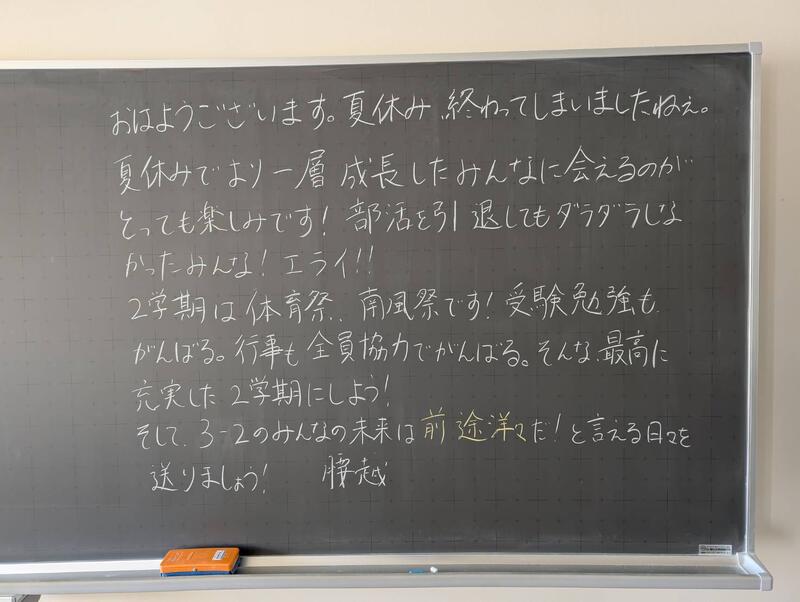 おはようございます。夏休み、終わってしまいましたねぇ。
夏休みでより一層成長したみんなに会えるのが
とっても楽しみです！部活を引退してもダラダラしな
かったみんな！エライ！！
2学期は体育祭、南風祭です！受験勉強も
がんばる。行事も全員協力でがんばる。そんな、最高に
充実した2学期にしよう！
そして、3-2のみんなの未来は前途洋々だ！と言える日々を
送りましょう！　腰越